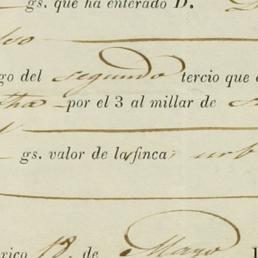 gs. que ha enterado D.
go del segundo tercio que
por el 3 al millar de
gs. valor de la finca urb
xico 18 de Mayo 1